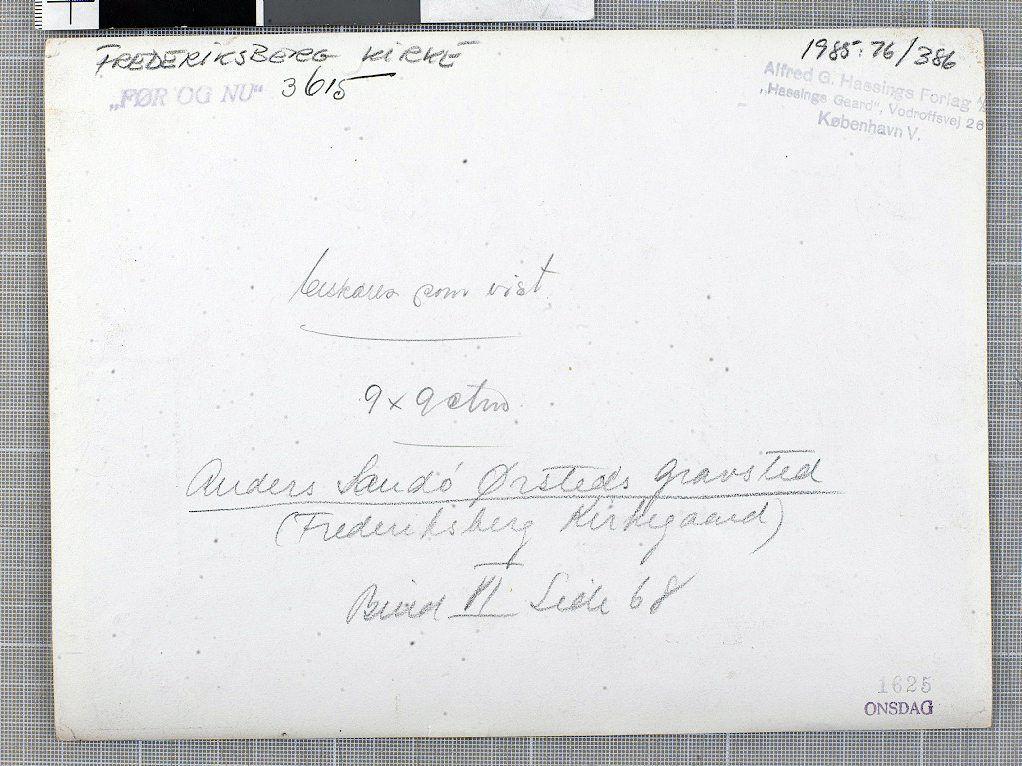 FREDERIKSBERG KIRKE
1985:76/386
„FØR OG NU“ 3615
Alfred G. Hassings Forlag
„Hassings Gaard“, Vodroffsvej 26
København V.
som vist
9 x 9 ctm
Anders Sandö Ørsteds gravsted
(Frederiksberg Kirkegaard)
Bind VI Side 68
1625
ONSDAG